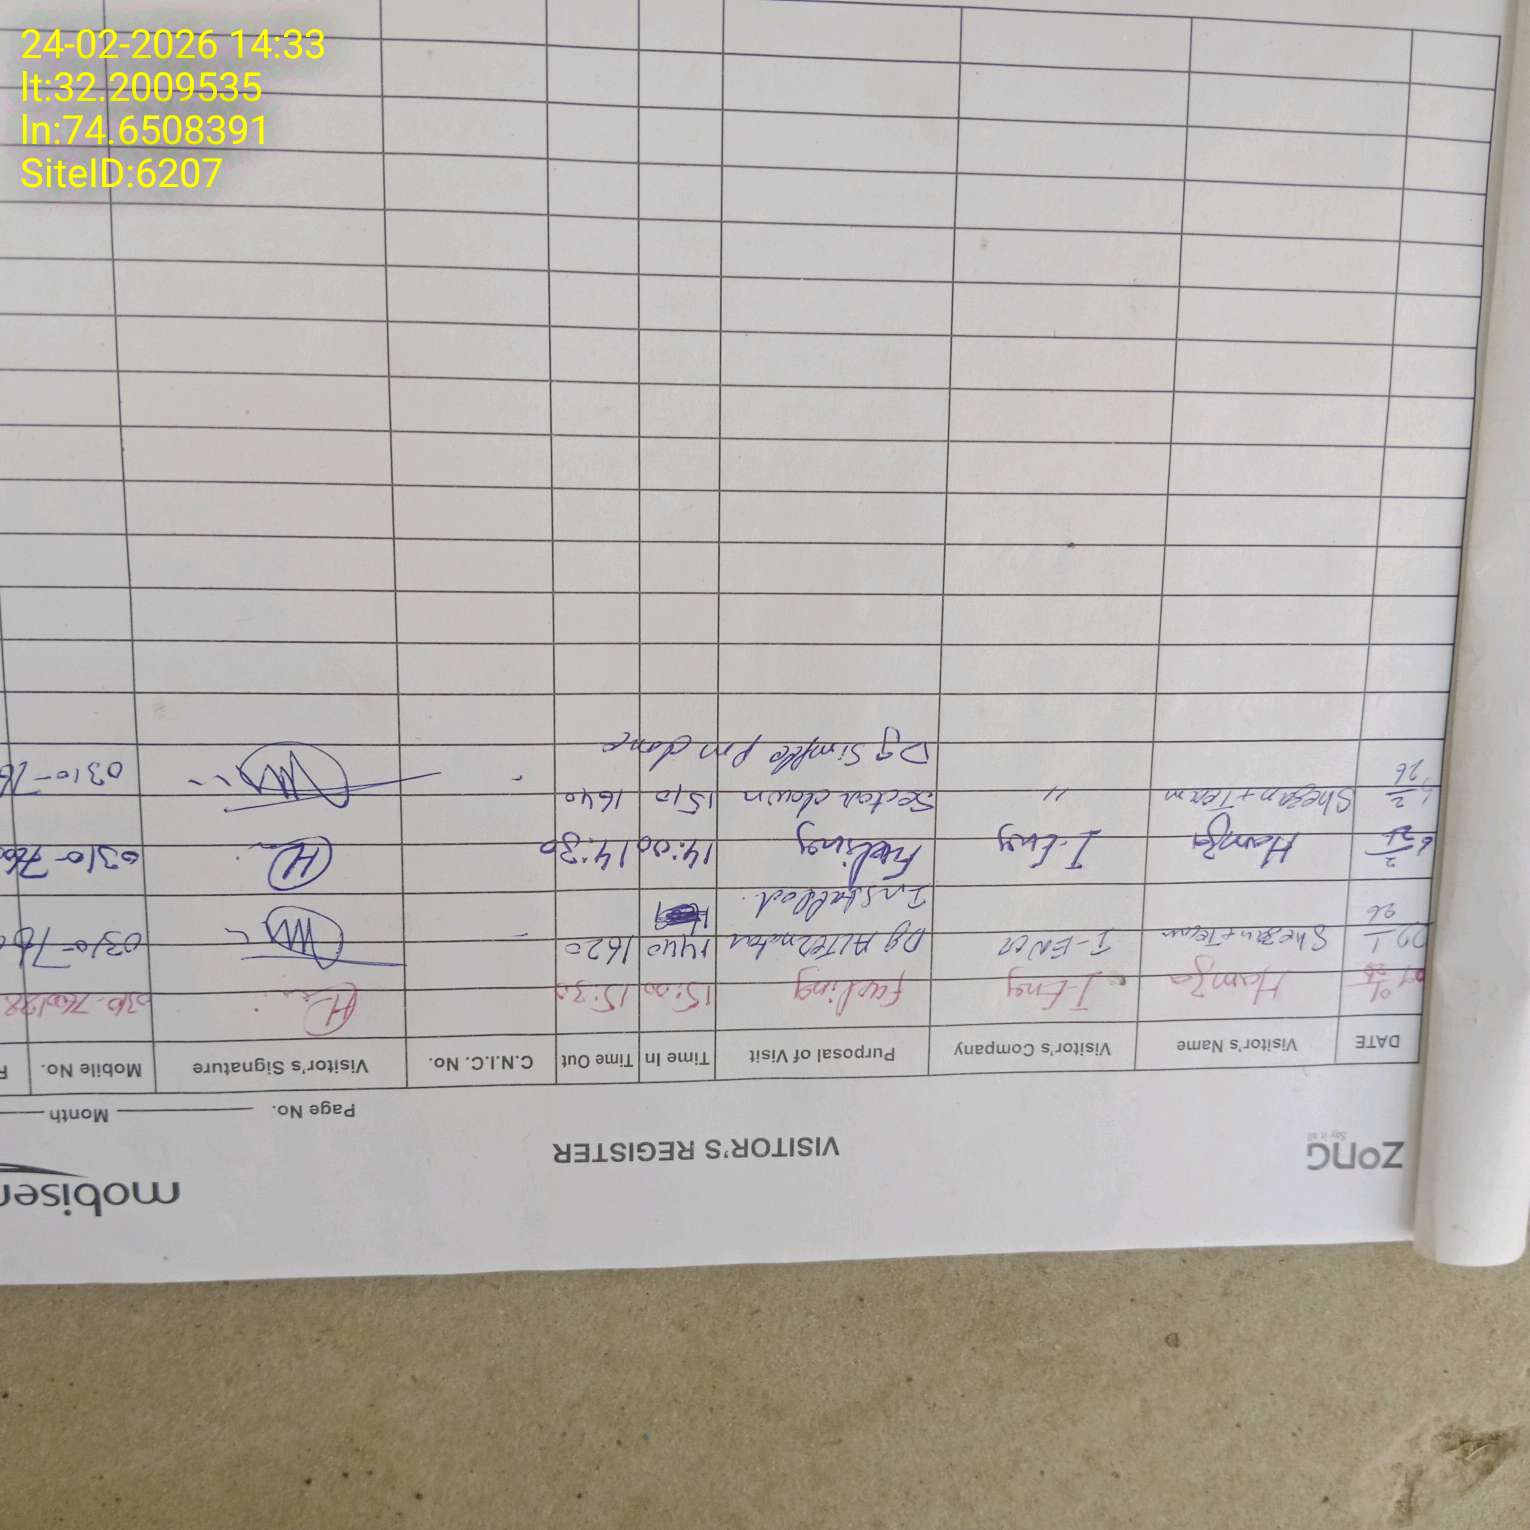 24-02-2026 14:33
lt:32.2009535
ln:74.6508391
SiteID:6207
zong
Say it all
mobiser
VISITOR'S REGISTER
Page No. Month
DATE Visitor's Name Visitor's Company Purposal of Visit Time In Time Out C.N.I.C. No. Visitor's Signature Mobile No.
Hamza I-Eng fueling 15:00 15:30
Shezan+Team I-ENG Dg Alternator 1440 1620 - 0310-76
26 Installed.
Hamza I-Eng Fueling 14:00 14:30 0310-760
Shezan+Team " Sector down 1510 1640 - 0310-76
26 Dg Simple Pm done